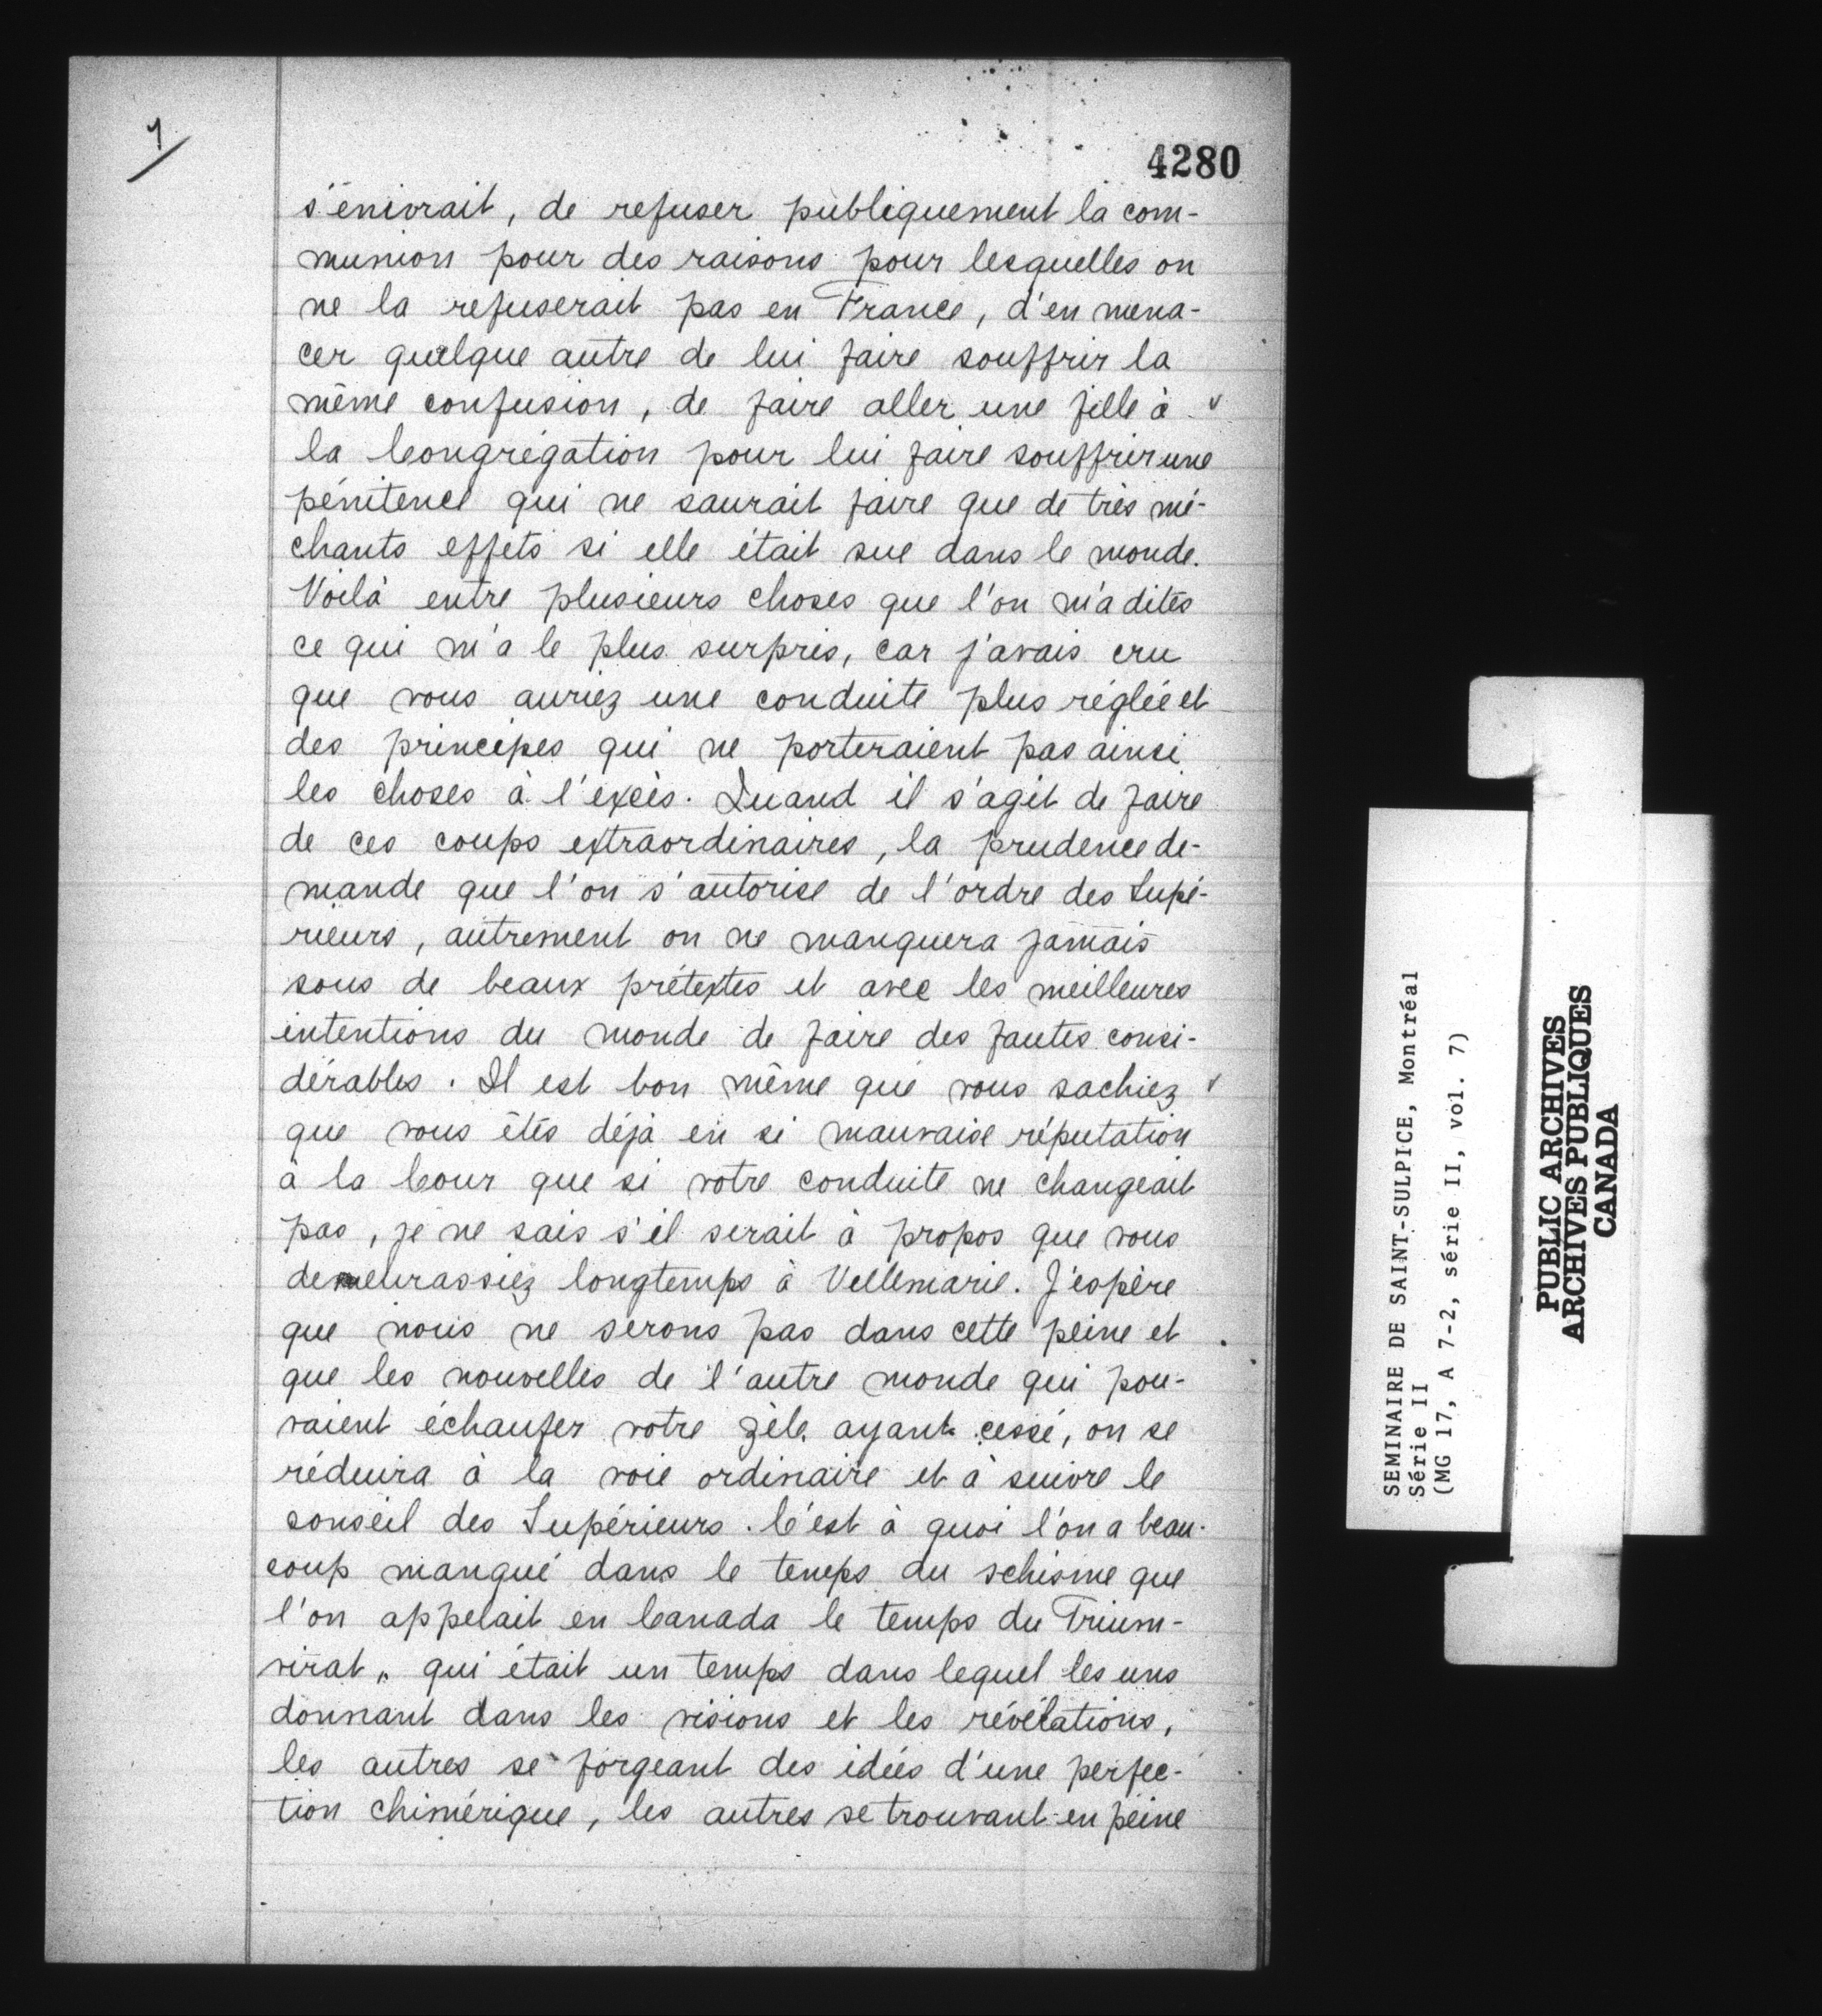 7
4280
s'énivrait, de refuser publiquement la com-
munion pour des raisons pour lesquelles on
ne la refuserait pas en France, d'en mena-
cer quelque autre de lui faire souffrir la
même confusion, de faire aller une fille à
la Congrégation pour lui faire souffrir une
pénitence qui ne saurait faire que de très mé-
chants effets si elle était sue dans le monde.
Voilà entre plusieurs choses que l'on m'a dites
ce qui m'a le plus surpris, car j'avais cru
que vous auriez une conduite plus réglée et
des principes qui ne porteraient pas ainsi
les choses à l'excès. Quand il s'agit de faire
de ces coups extraordinaires, la prudence de-
mande que l'on s'autorise de l'ordre des Supé-
rieurs, autrement on ne manquera jamais
sous de beaux prétextes et avec les meilleures
intentions du monde de faire des fautes consi-
dérables. Il est bon même que vous sachiez
que vous êtes déjà en si mauvaise réputation
à la Cour que si votre conduite ne changeait
pas, je ne sais s'il serait à propos que vous
demeurassiez longtemps à Villemarie. J'espère
que nous ne serons pas dans cette peine et
que les nouvelles de l'autre monde qui pou-
vaient échaufer votre zèle ayant cessé, on se
réduira à la voie ordinaire et à suivre le
conseil des Supérieurs. C'est à quoi l'on a beau-
coup manqué dans le temps du schisme que
l'on appelait en Canada le temps du Trium-
virat, qui était un temps dans lequel les uns
donnant dans les visions et les révélations,
les autres se forgeant des idées d'une perfec-
tion chimérique, les autres se trouvant en peine
SEMINAIRE DE SAINT-SULPICE, Montréal
Série II
(MG 17, A 7-2, série II, vol. 7)
PUBLIC ARCHIVES
ARCHIVES PUBLIQUES
CANADA